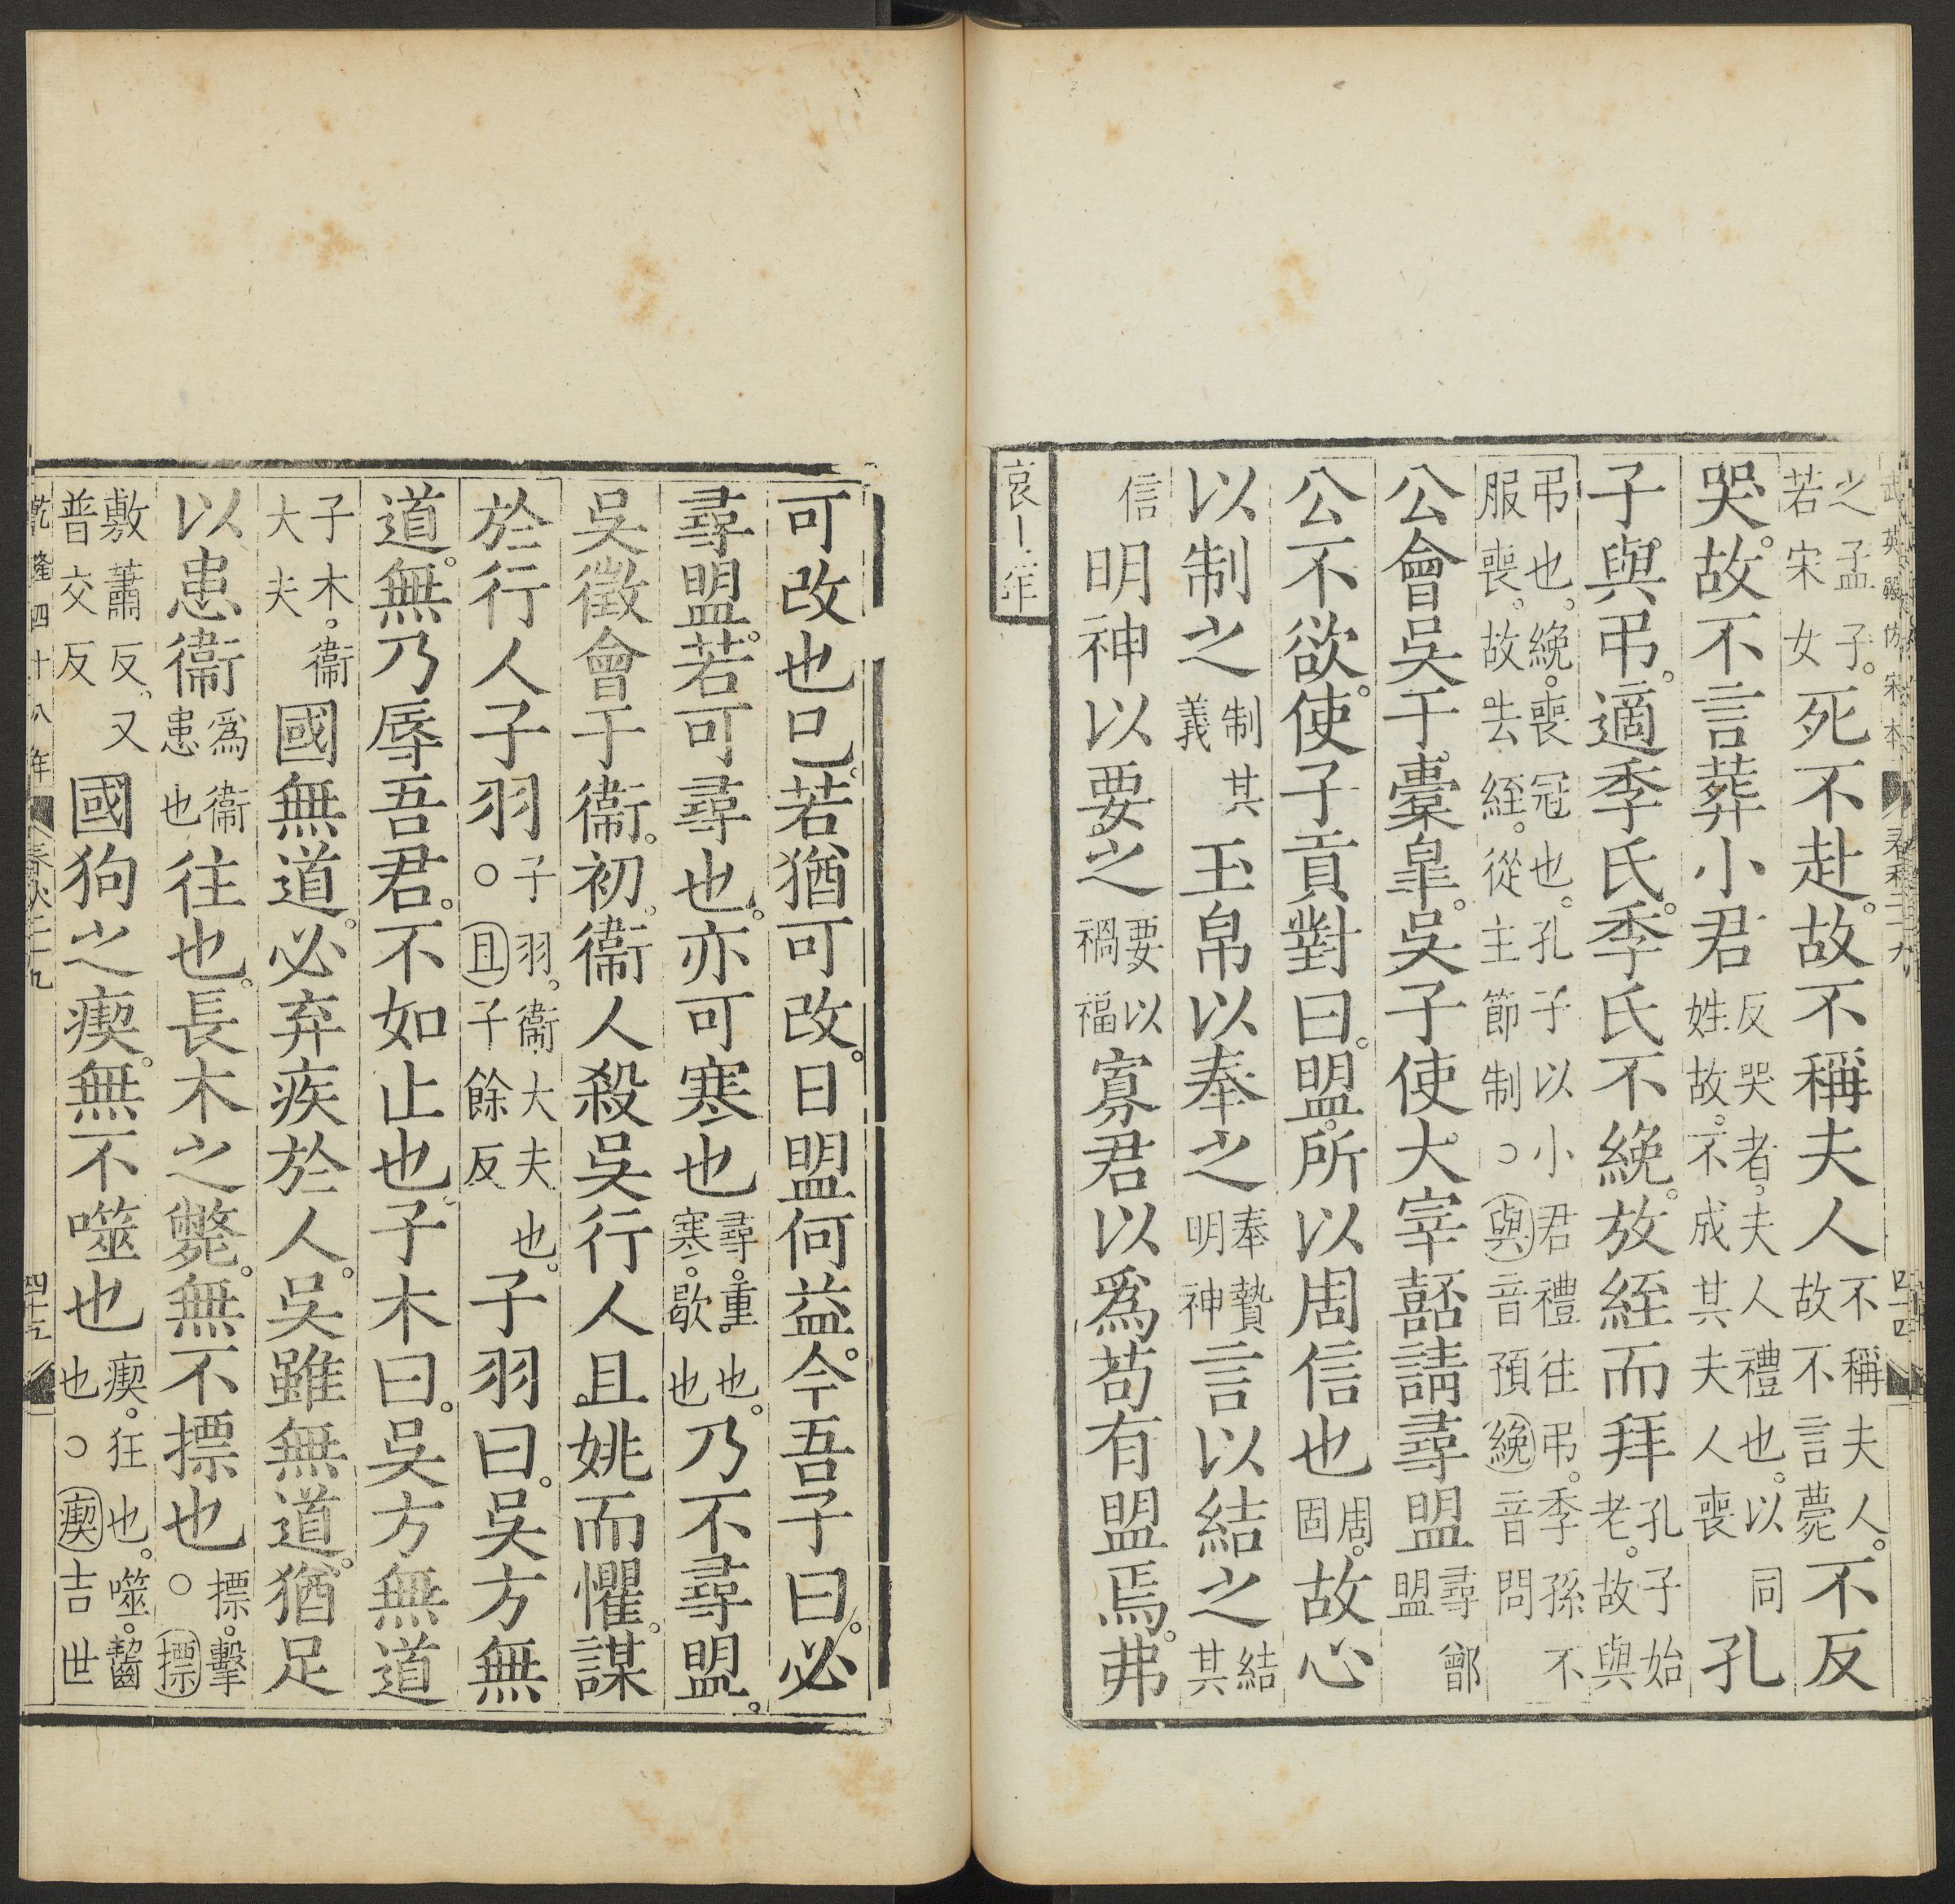 武英殿仿宋本 春秋二十九 四十四
之孟子。若宋女死不赴。故不稱夫人不稱夫人。故不言薨不反
哭。故不言葬小君反哭者、夫人禮也。以同姓故。不成其夫人喪孔
子與弔。適季氏。季氏不絻。放絰而拜孔子始老。故與
弔也。絻。喪冠也。孔子以小君禮往弔。季孫不服喪。故去絰。從主節制○與音預絻音問
公會吳于橐皐。吳子使大宰嚭請尋盟尋鄫盟
公不欲。使子貢對曰。盟。所以周信也周。固故心
以制之制其義玉帛以奉之奉贄明神言以結之結其
信明神以要之要以禍福寡君以爲苟有盟焉。弗
哀十二年
可改也已。若猶可改。日盟何益。今吾子曰。必
尋盟。若可尋也。亦可寒也尋。重也。寒。歇也乃不尋盟。
吳徵會于衞。初。衞人殺吳行人且姚而懼。謀
於行人子羽子羽。衞大夫也。○且子餘反子羽曰。吳方無
道。無乃辱吾君。不如止也。子木曰。吳方無道
子木。衞大夫國無道。必弃疾於人。吳雖無道。猶足
以患衞爲衞患也往也。長木之斃。無不摽也摽。擊○摽
敷蕭反、又普交反國狗之瘈。無不噬也瘈。狂也。噬。齧也○瘈吉世
乾隆四十八年 春秋二十九 四十五